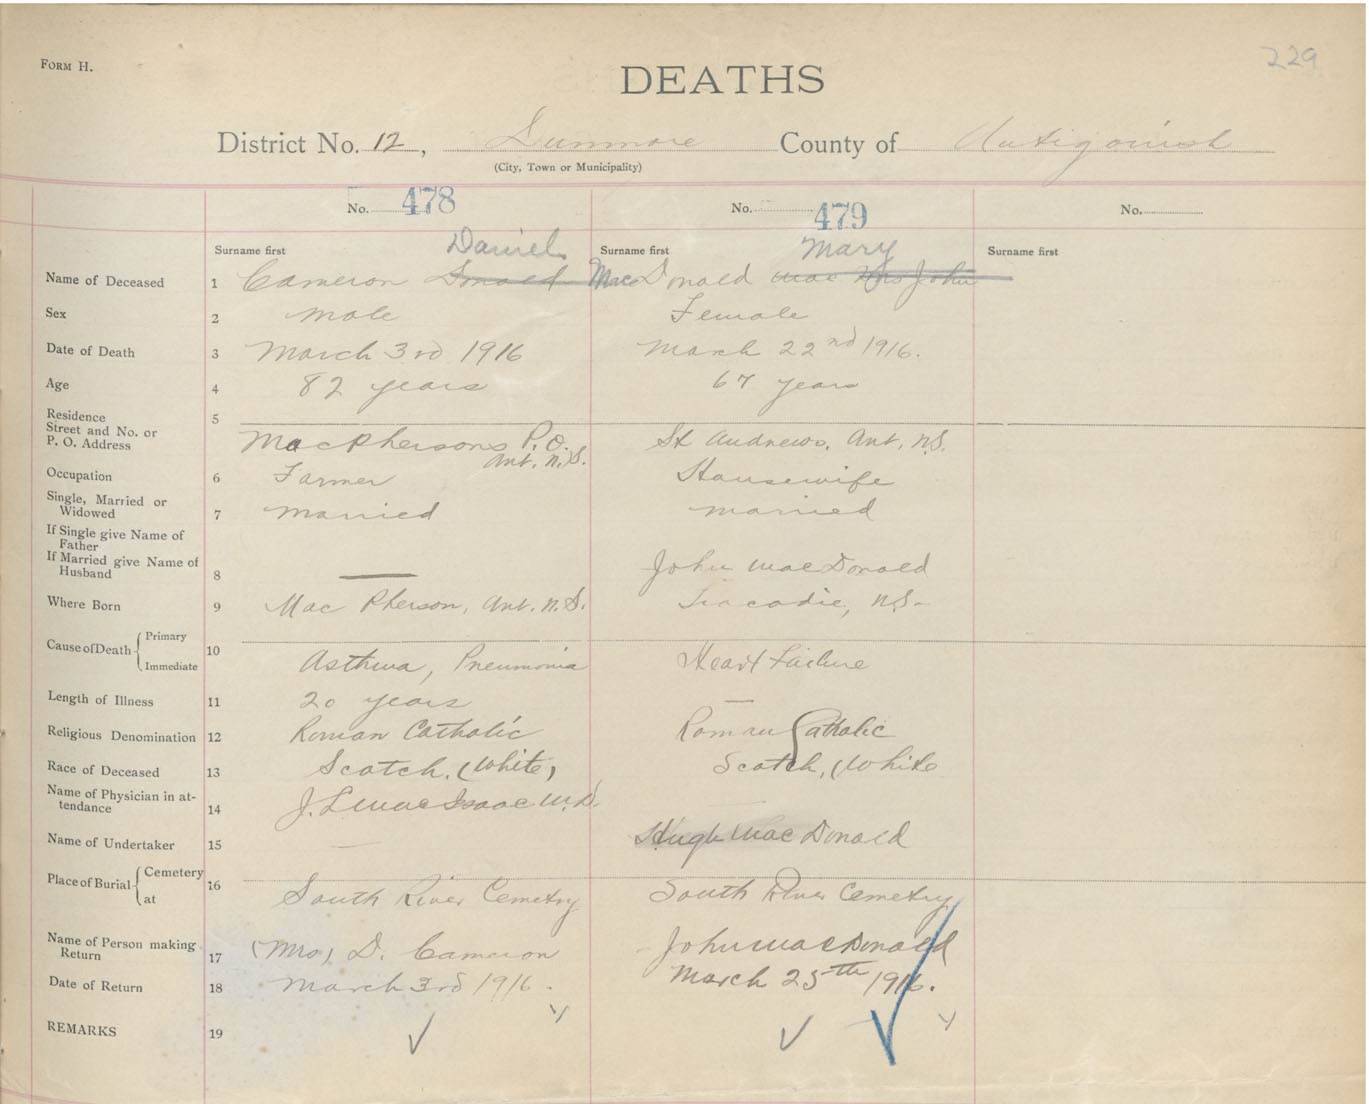 229
FORM H.
DEATHS
District No. 12, Dunmore County of Antigonish
(City, Town or Municipality)
No. 478 No. 479 No.
Surname first Daniel Surname first Mary Surname first
Name of Deceased 1 Cameron Donald MacDonald Mac Mrs John
Sex 2 Male Female
Date of Death 3 March 3rd 1916 March 22nd 1916.
Age 4 82 years 67 years
Residence
Street and No. or
P. O. Address 5 MacPhersons P.O. St Andrews, Ant, N.S.
Ant. N.S.
Occupation 6 Farmer Housewife
Single, Married or
Widowed 7 Married Married
If Single give Name of
Father
If Married give Name of
Husband 8 — John MacDonald
Where Born 9 Mac Pherson, Ant. N.S. Tracadie, N.S.
Cause of Death { Primary
Immediate 10 Asthma, Pneumonia Heart Failure
Length of Illness 11 20 years —
Religious Denomination 12 Roman Catholic Roman Catholic
Race of Deceased 13 Scotch, (White) Scotch, (White
Name of Physician in at-
tendance 14 J. L. MacIsaac M.D. —
Name of Undertaker 15 — Hugh MacDonald
Place of Burial { Cemetery
at 16 South River Cemetry South River Cemetry
Name of Person making
Return 17 (Mrs) D. Cameron John MacDonald
Date of Return 18 March 3rd 1916. March 25th 1916.
REMARKS 19